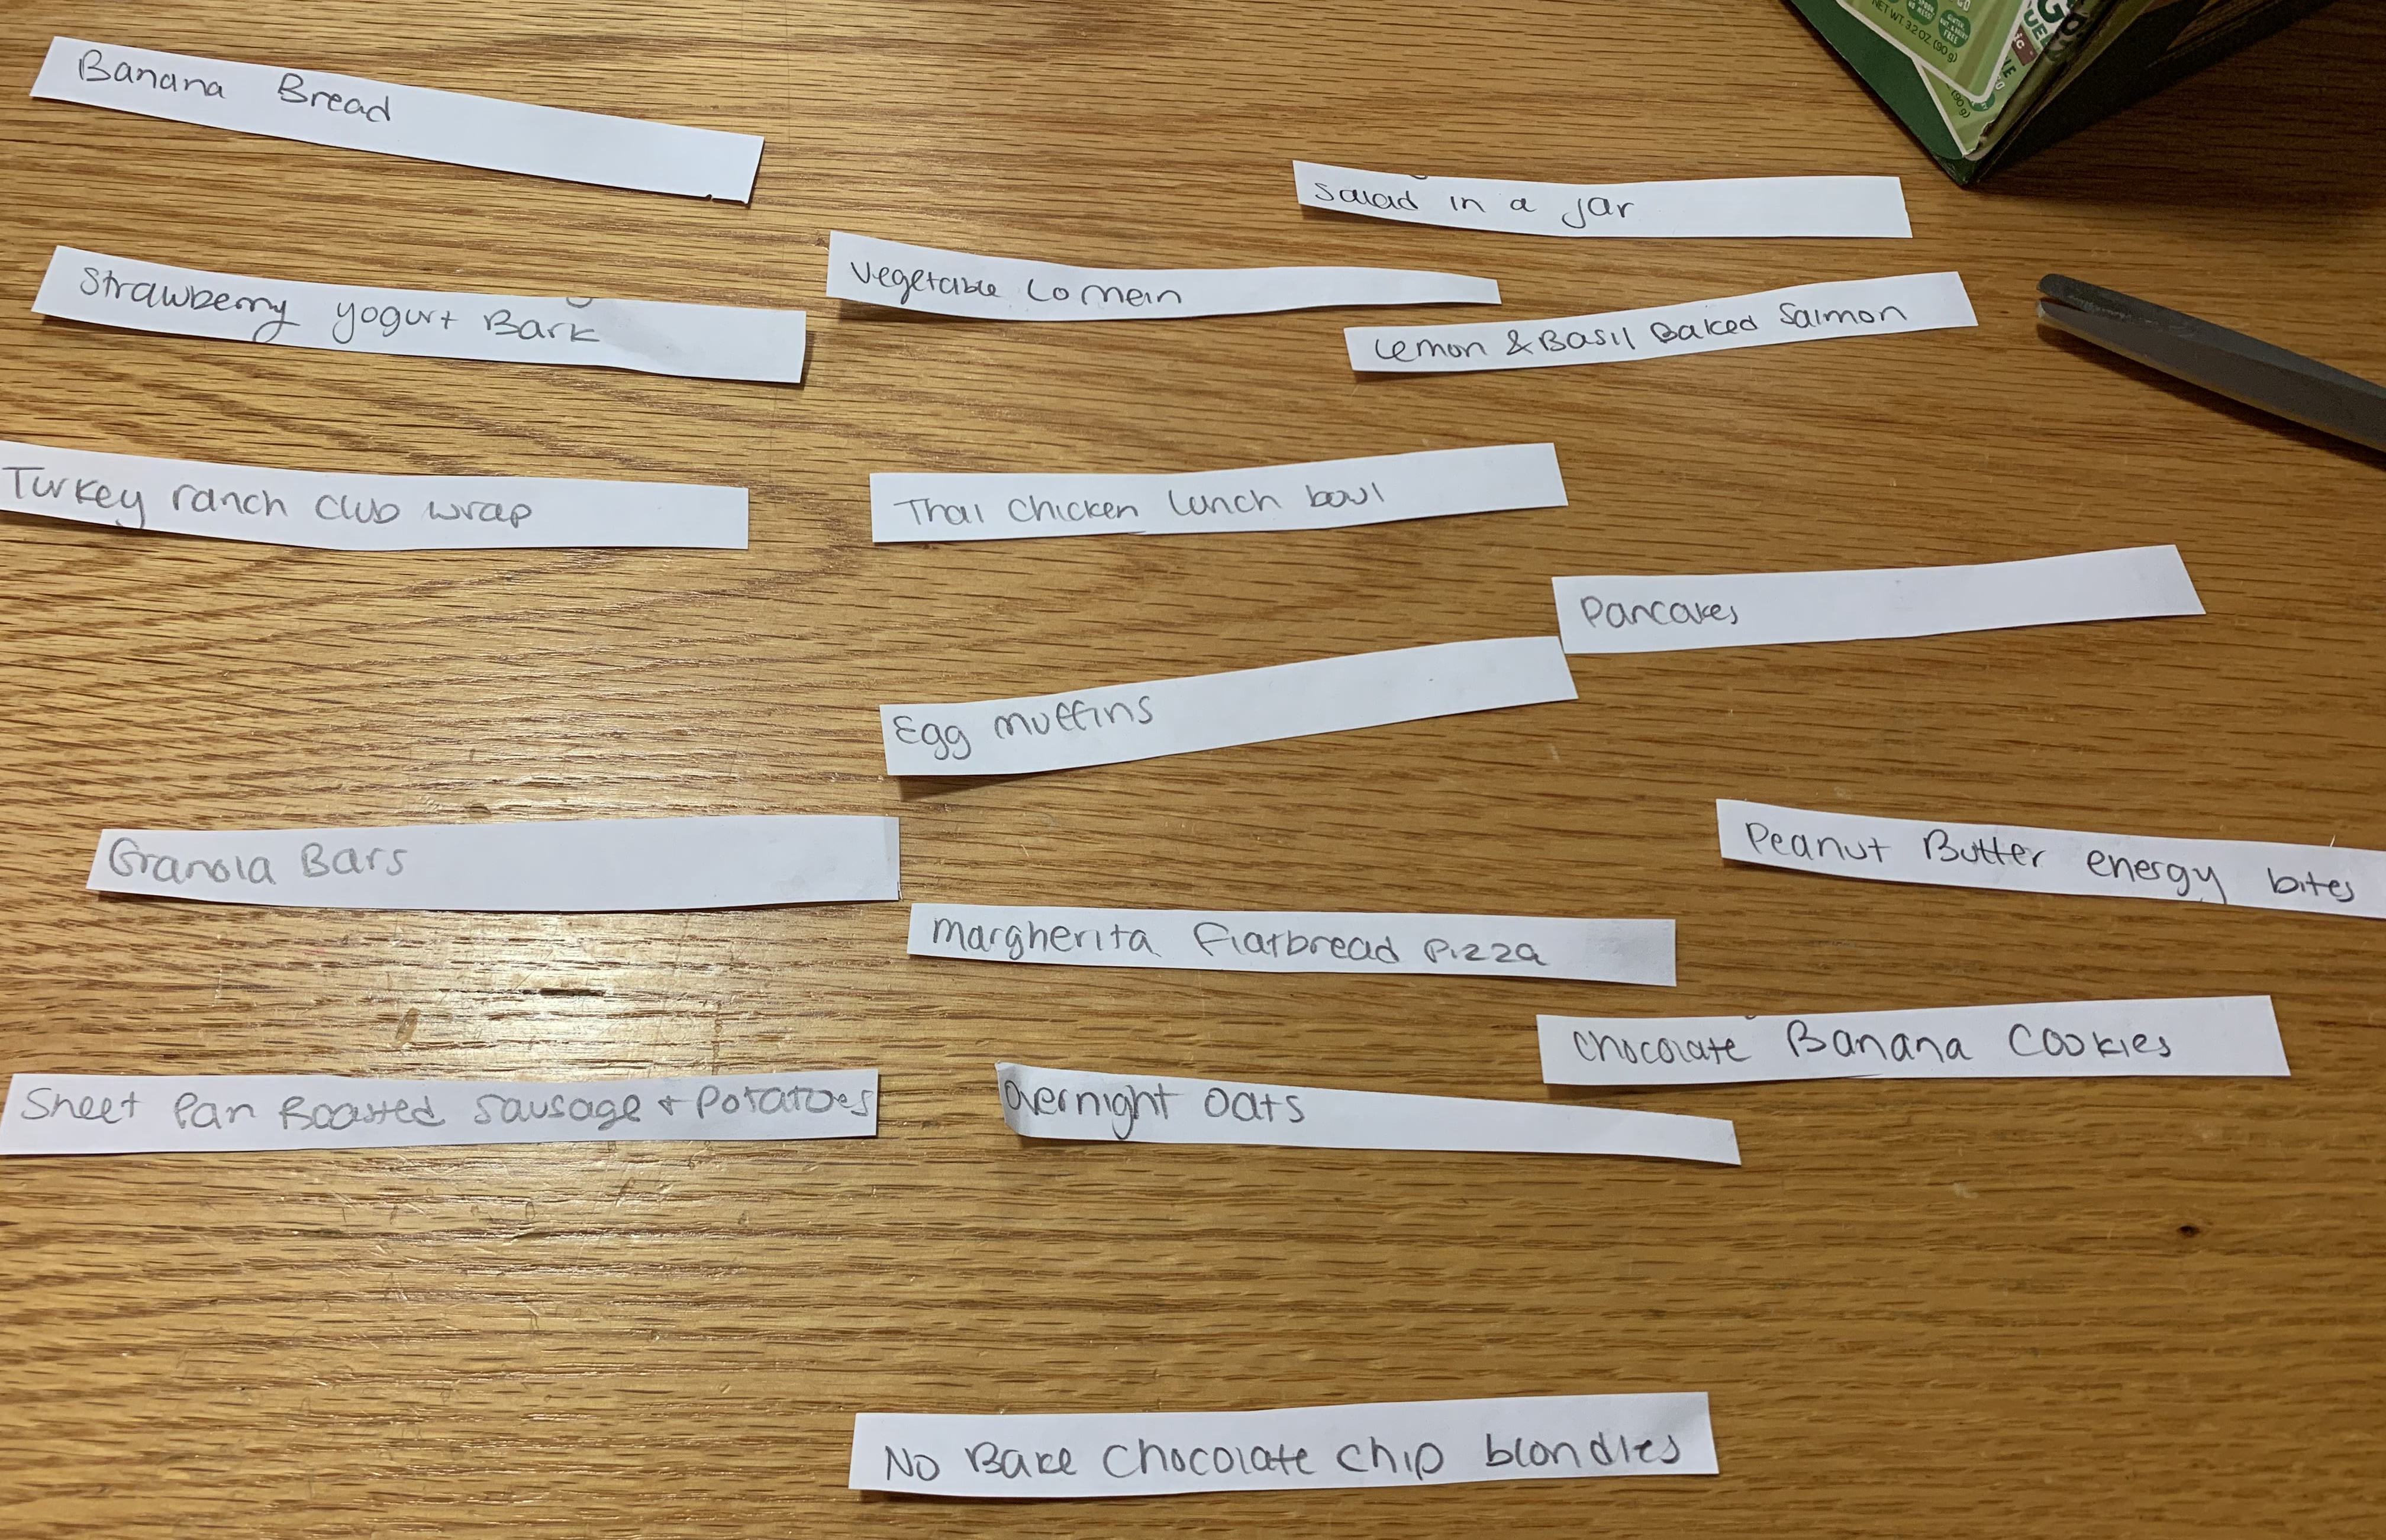 Banana Bread
Salad in a jar
Strawberry yogurt Bark
Vegetable Lo mein
Lemon & Basil Baked Salmon
Turkey ranch club wrap
Thai chicken lunch bowl
Pancakes
Egg muffins
Granola Bars
Peanut Butter energy bites
margherita flatbread pizza
chocolate Banana Cookies
Sheet Pan Roasted Sausage + Potatoes
Overnight oats
No Bake Chocolate chip blondies
NET WT. 3.2 OZ. (90 g)
FREE
(90 g)